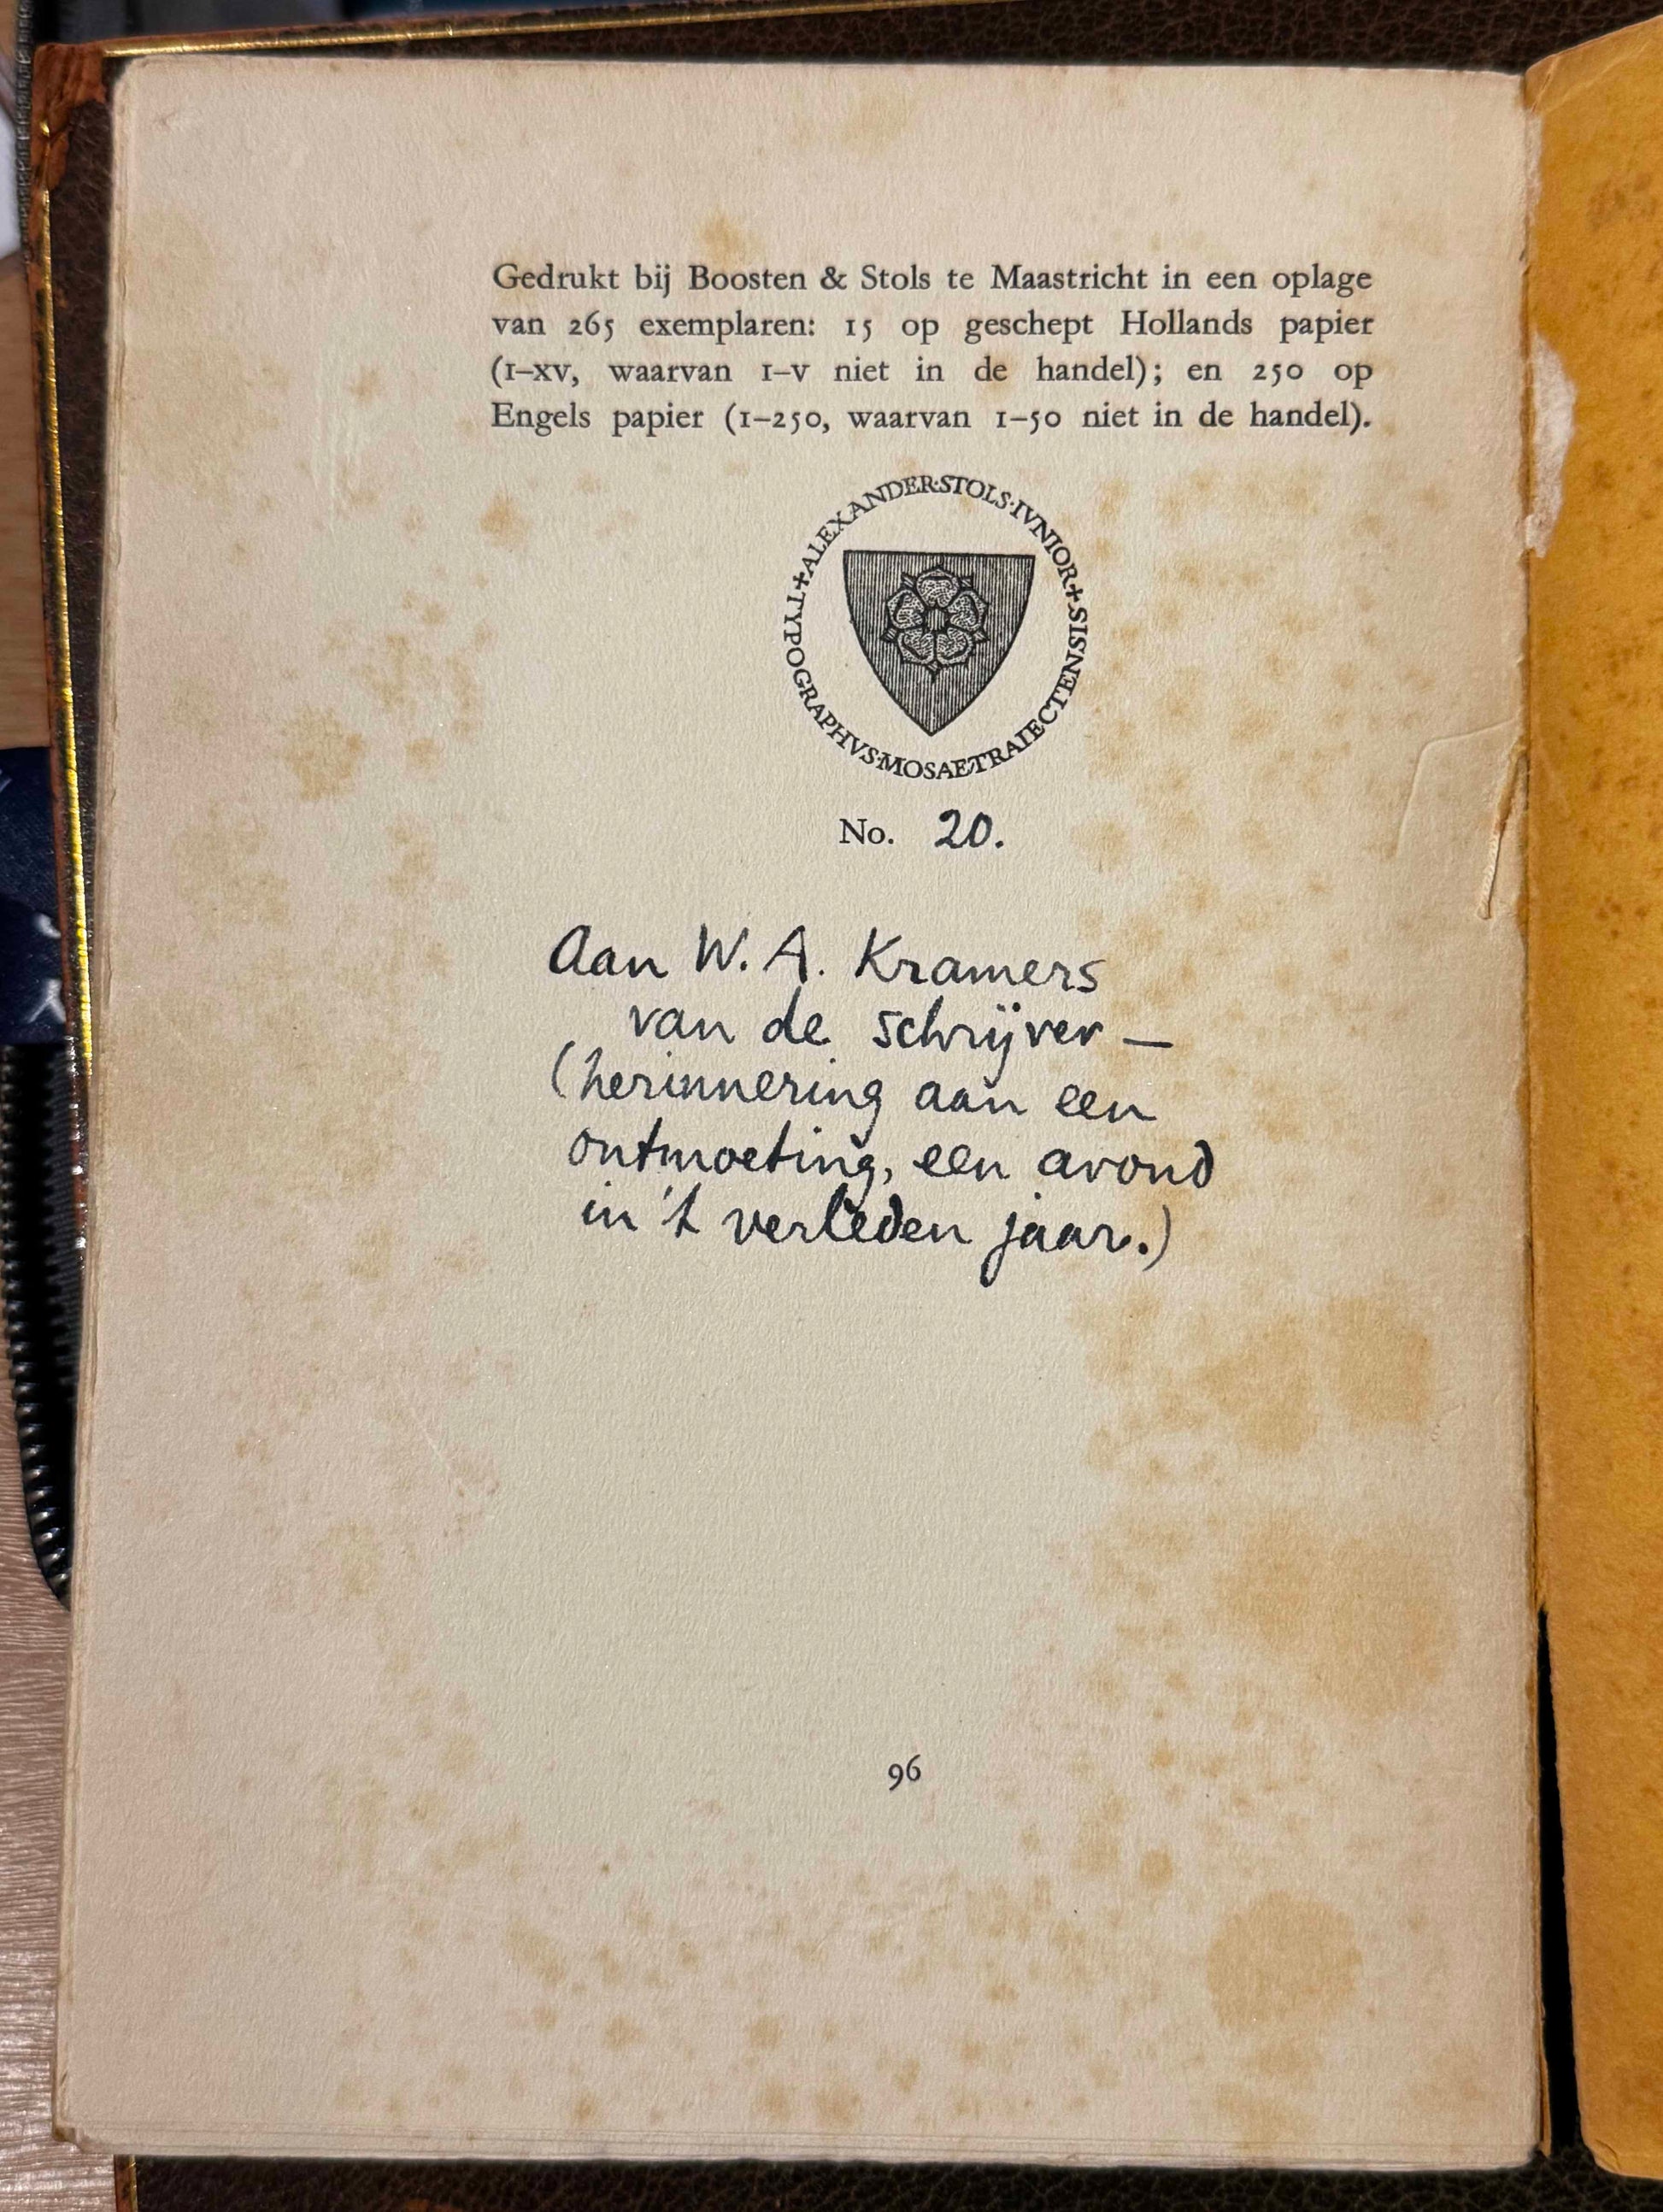 Gedrukt bij Boosten & Stols te Maastricht in een oplage
van 265 exemplaren: 15 op geschept Hollands papier
(I–XV, waarvan I–V niet in de handel); en 250 op
Engels papier (1–250, waarvan 1–50 niet in de handel).
+ALEXANDER·STOLS·IVNIOR+SISNETCEIARTEASOM·SVHPARGOPYT
No. 20.
Aan W. A. Kramers
van de schrijver —
(herinnering aan een
ontmoeting, een avond
in 't verleden jaar.)
96